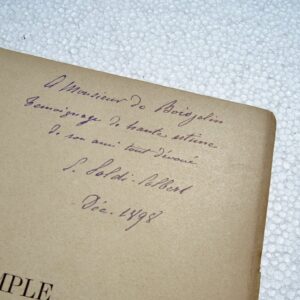 A Monsieur de Boisgelin
Témoignage de haute estime
de son ami tout dévoué
S. Soldi-Colbert
Déc. 1898
MPLE